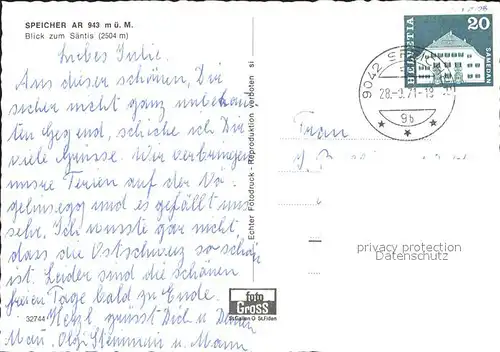 SPEICHER AR 943 m ü. M.
Blick zum Säntis (2504 m)
Liebes Julie.
Aus dieser schönen, Dir
sicher nicht ganz unbekann-
ten Gegend, schicke ich Dir
viele Grüsse. Wir verbringen
unsre Ferien auf der Vö-
gelinsegg und es gefällt uns
sehr. Ich wusste gar nicht
dass die Ostschweiz so schön
ist. Leider sind die schönen
freien Tage bald zu Ende.
Herzl. grüsst Dich u Deinen
Man. Olgi u. Mann
32744
Echter Fotodruck - Reproduktion verboten si
foto
Gross
St.Gallen O St.Fiden
HELVETIA
20
SAMEDAN
9042
28.-9.71-18
9b
Frau
privacy protection
Datenschutz